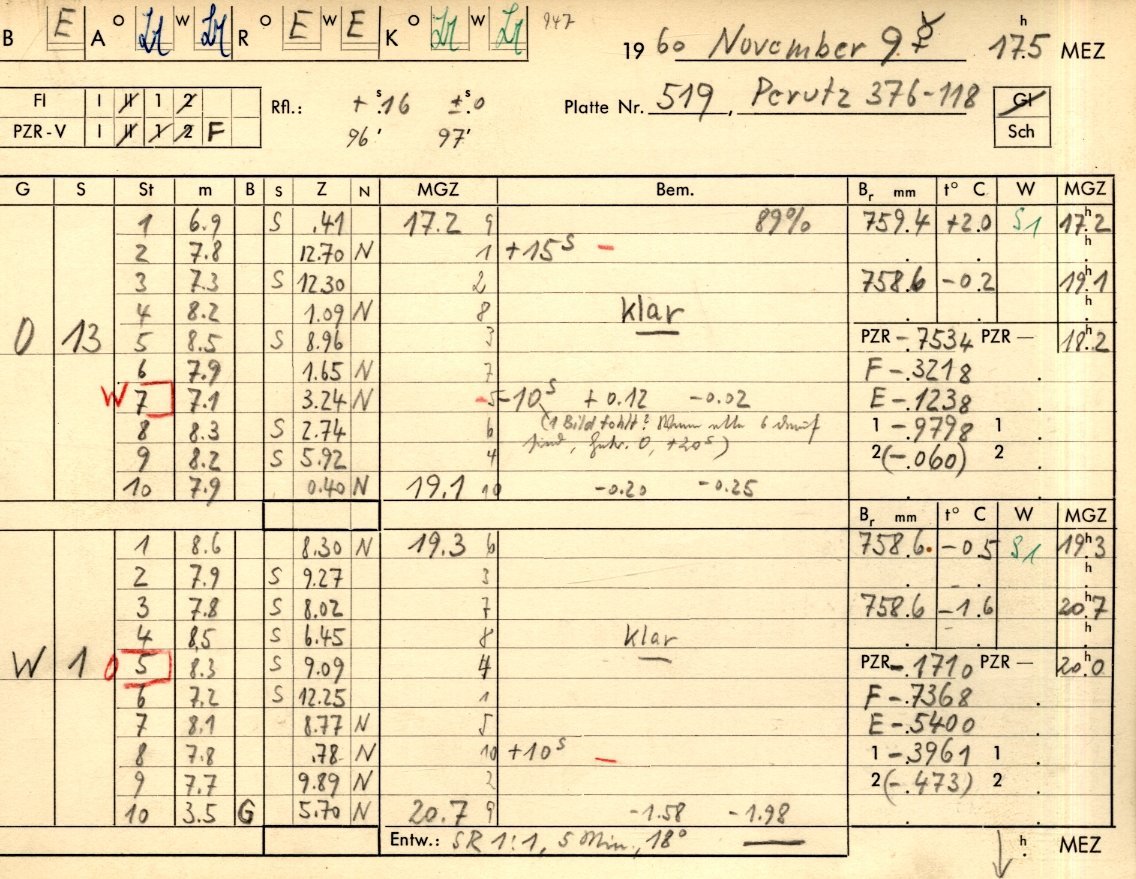 B E A O W R O E W E K O W 947
1960 November 9 ☿ 17.5 h MEZ
FI I II 1 2 Rfl.: + .s16 ±.s0 Platte Nr. 519, Perutz 376-118 Gl
PZR-V I II 1 2 F 96' 97' Sch
G S St m B S Z N MGZ Bem. Br mm t° C W MGZ
1 6.9 S .41 17.2 9 89% 759.4 +2.0 S1 17.2 h
2 7.8 12.70 N 1 +15s – h
3 7.3 S 12.30 2 758.6 -0.2 19.1 h
4 8.2 1.09 N 8 klar h
O 13 5 8.5 S 8.96 3 PZR -.7534 PZR — 18.2 h
6 7.9 1.65 N 7 F -.3218
W 7 7.1 3.24 N 5 -10s +0.12 -0.02 E -.1238
8 8.3 S 2.74 6 (1 Bild fehlt? 6 1 -.9798 1
9 8.2 S 5.92 4 0, +20s) 2 (-.060) 2
10 7.9 0.40 N 19.1 10 -0.20 -0.25
Br mm t° C W MGZ
1 8.6 8.30 N 19.3 6 758.6 -0.5 S1 19.3 h
2 7.9 S 9.27 3 h
3 7.8 S 8.02 7 758.6 -1.6 20.7 h
4 8,5 S 6.45 8 klar h
W 1 O 5 8.3 S 9.09 4 PZR -.1710 PZR — 20.0
6 7.2 S 12.25 1 F -.7368
7 8.1 8.77 N 5 E -.5400
8 7.8 .78 N 10 +10s – 1 -.3961 1
9 7.7 9.89 N 2 2 (-.473) 2
10 3.5 G 5.70 N 20.7 9 -1.58 -1.98
Entw.: SR 1:1, 5 Min., 18° — h MEZ